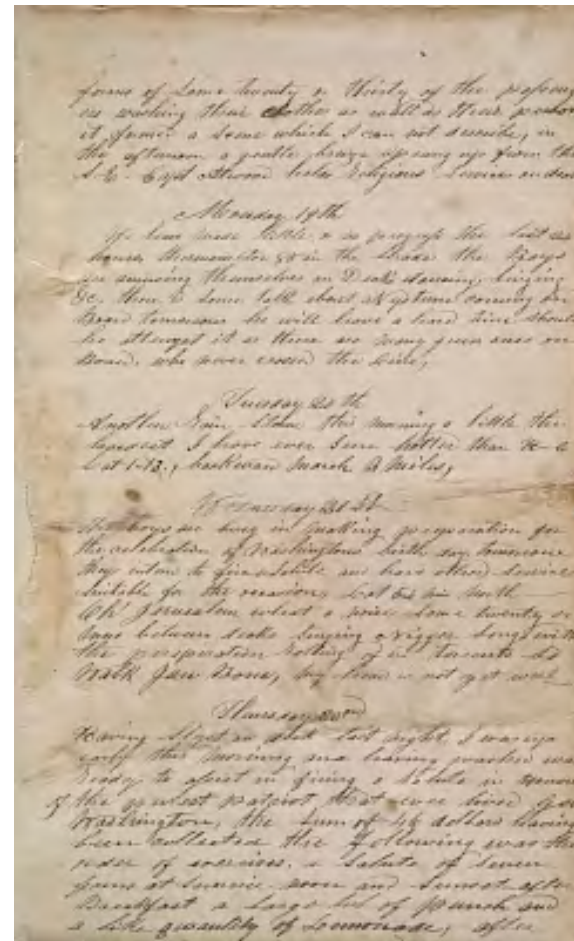 forms of some twenty or thirty of the
washing their clothes as well as their
it formed a scene which I can not describe, in
the afternoon a gentle breeze sprung up from the
S.E. Capt Atwood holds religious Service on deck
Monday 19th
We have made little or no progress the last 24
hours, thermometer 80 in the shade the Boys
are amusing themselves on Deck dancing, singing
&c. there is some talk about Neptune coming on
Board tomorrow he will have a hard time should
he attempt it as there are many green ones on
Board, who never crossed the line,
Tuesday 20th
Another Rain Storm this morning a little the
I have ever seen hotter than
Lat 1-13, backwards march 2 miles,
Wednesday 21st
The boys are busy in making preparation for
the celebration of Washingtons birth day tomorrow
They intend to fire salutes and have other
suitable for the occasion, Lat North
Oh' Jerusalem what a noise some twenty or
between decks singing a nigger song with
the perspiration rolling off in torrents
Walk Jaw Bone, my is not yet well
Thursday 22nd
Having Slept on deck last night, I was up
early this morning and having washed was
ready to assist in firing a Salute in honour
of the greatest patriot that ever lived Geo
Washington, the sum of 46 dollars having
been collected the following was the
order of exercises. a Salute of seven
guns at sunrise noon and Sunset after
Breakfast a large tub of punch and
a like quantity of Lemonade, after